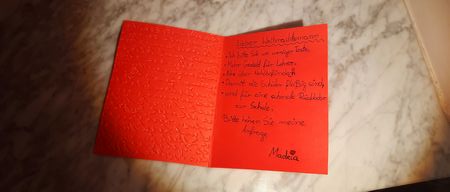 Lieber Weihnachtsmann,
• Ich bitte Sie um weniger Tests,
• Mehr Geduld für Lehrer,
• Alle
• Damit alle Schüler fleißig sind,
• und für eine schnelle Rückkehr
zur Schule.
Bitte hören Sie meine
Anfrage
Madkia